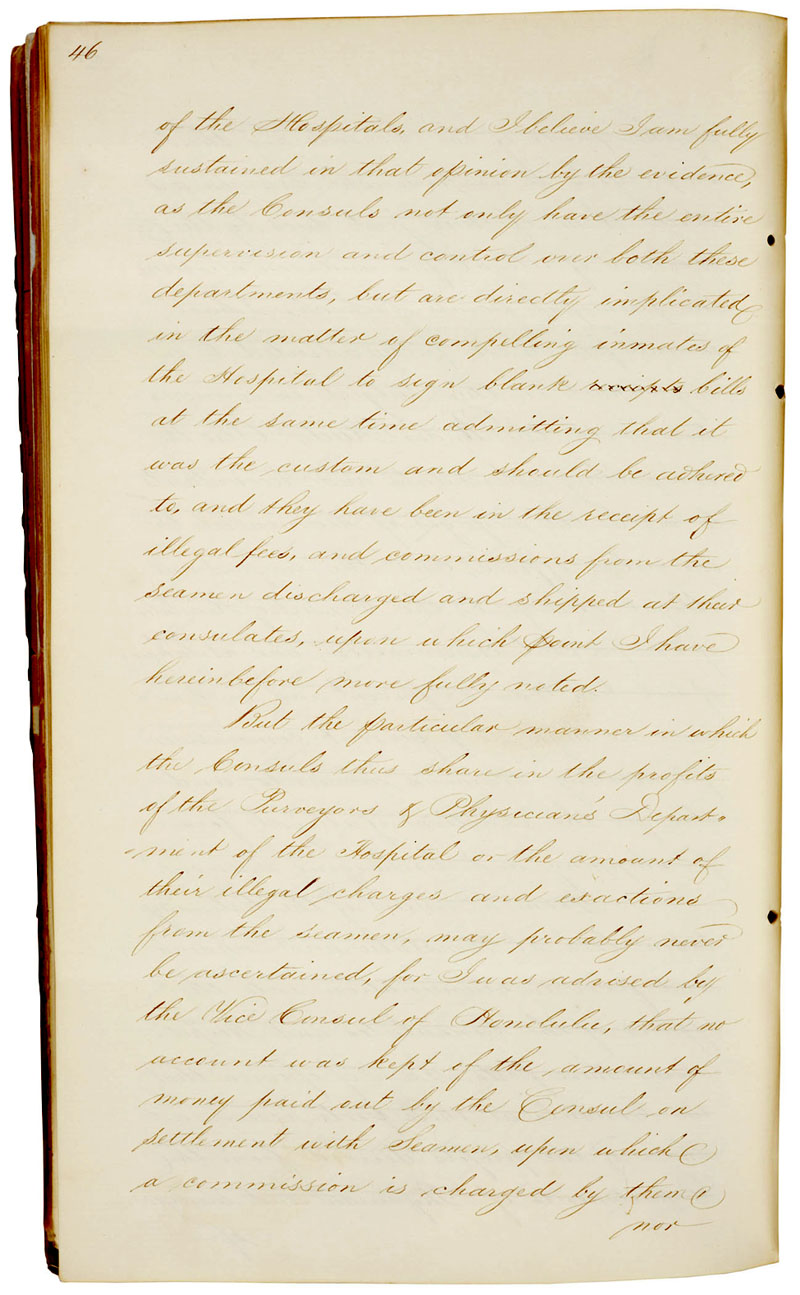 46
of the Hospitals, and I believe I am fully
sustained in that opinion by the evidence,
as the Consuls not only have the entire
supervision and control over both these
departments, but are directly implicated
in the matter of compelling inmates of
the Hospital to sign blank receipts bills
at the same time admitting that it
was the custom and should be adhered
to, and they have been in the receipt of
illegal fees, and commissions from the
seamen discharged and shipped at their
consulates, upon which point I have
hereinbefore more fully noted.
But the particular manner in which
the Consuls thus share in the profits
of the Purveyors & Physician's Depart-
-ment of the Hospital or the amount of
their illegal charges and exactions
from the seamen, may probably never
be ascertained, for I was advised by
the Vice Consul of Honolulu, that no
account was kept of the amount of
money paid out by the Consul on
settlement with Seamen, upon which
a commission is charged by them
nor